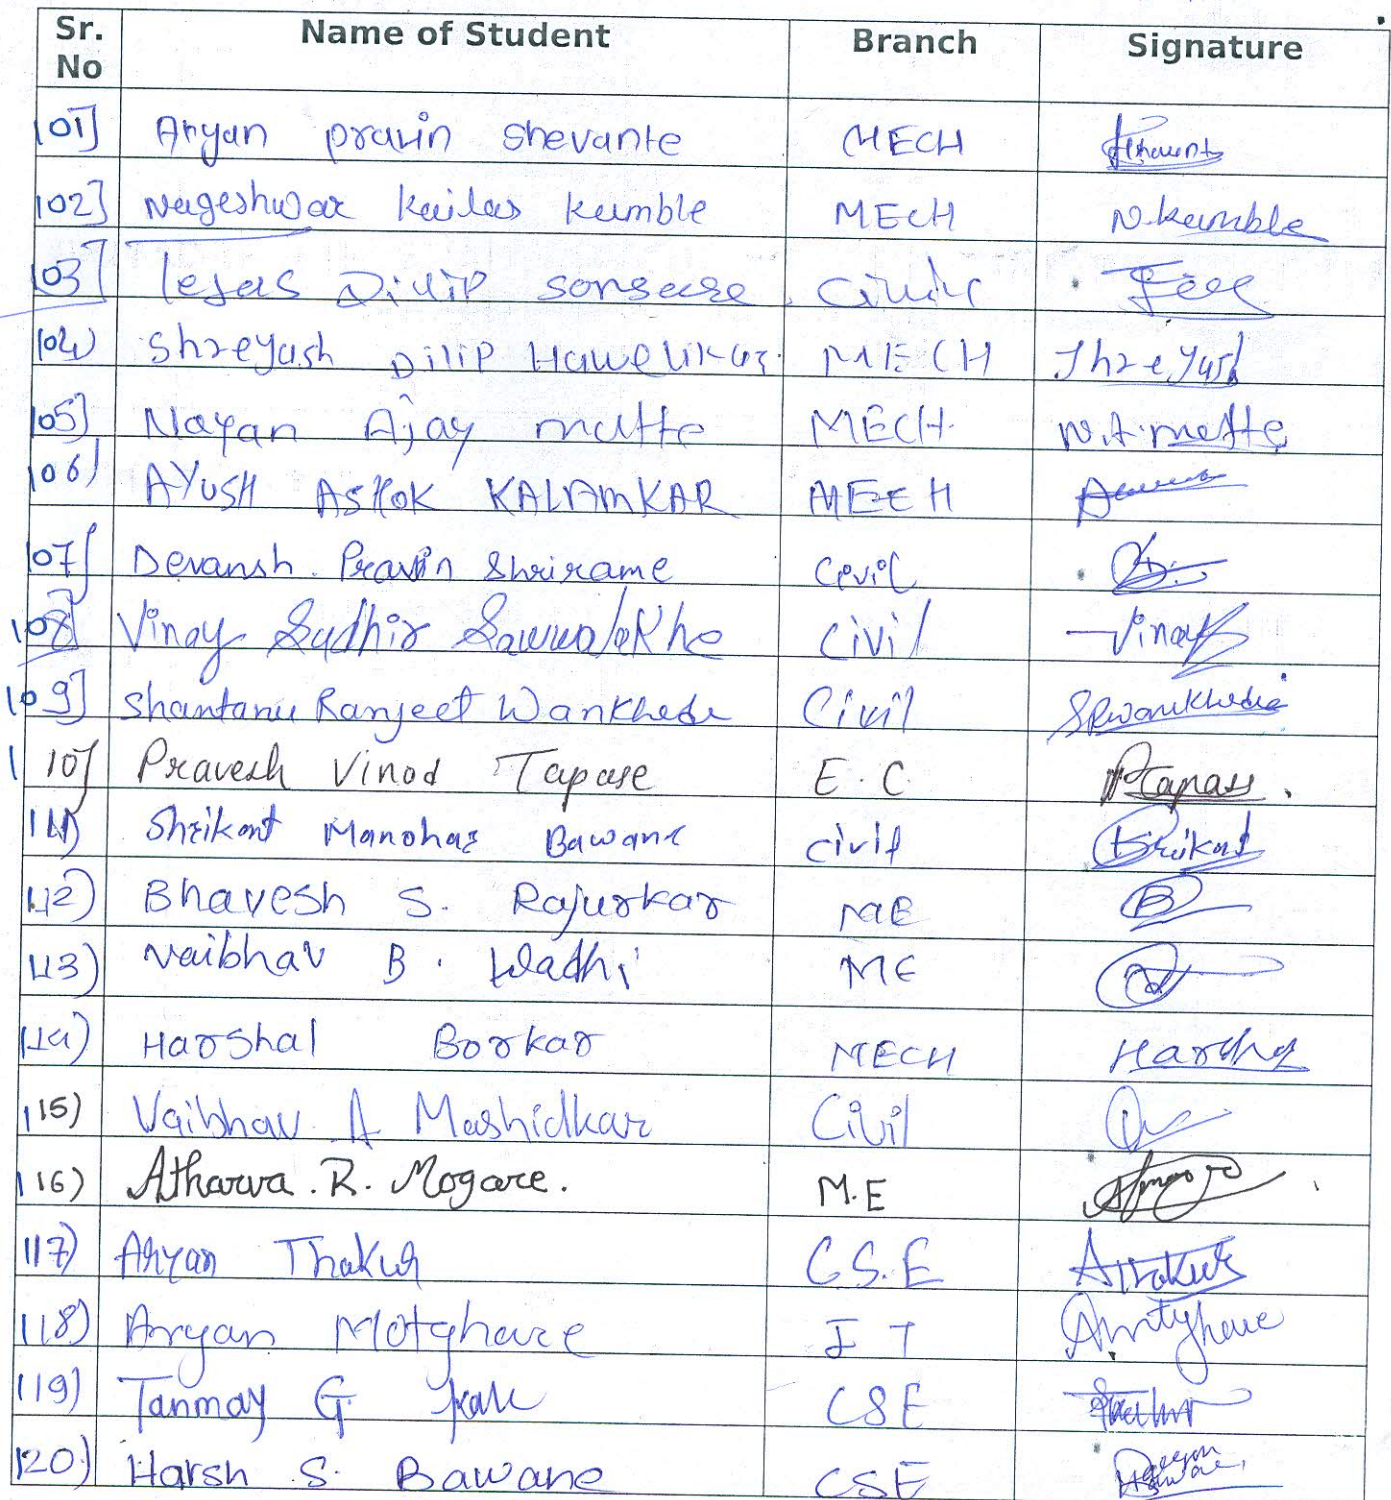 Sr. No Name of Student Branch Signature
101] Aryan pravin shevante MECH
102] Nageshwar kailas kumble MECH N.kumble
103] Tejas Dilip sonsare civil
104) Shreyash Dilip Hawelikar MECH Shreyash
105] Nayan Ajay matte MECH. N.A.matte
106) AYUSH ASHOK KALAMKAR MECH
107] Devansh. Pravin Shrirame Civil
108] Vinay Sudhir Sawwalakhe Civil Vinay
109] Shantanu Ranjeet Wankhede Civil SRWankhede
110] Pravesh Vinod Tapase E.C. PTapase.
111) Shrikant Manohar Bawane civil Shrikant
112) Bhavesh S. Rajurkar ME B
113) Vaibhav B. Wadhi ME
114) Harshal Borkar MECH Harshal
115) Vaibhav A Mashidkar Civil
116) Atharva.R. Mogare. M.E
117) Aryan Thakur C.S.E AThakur
118) Aryan Motghare IT AMotghare
119) Tanmay G. CSE
120) Harsh S. Bawane CSE